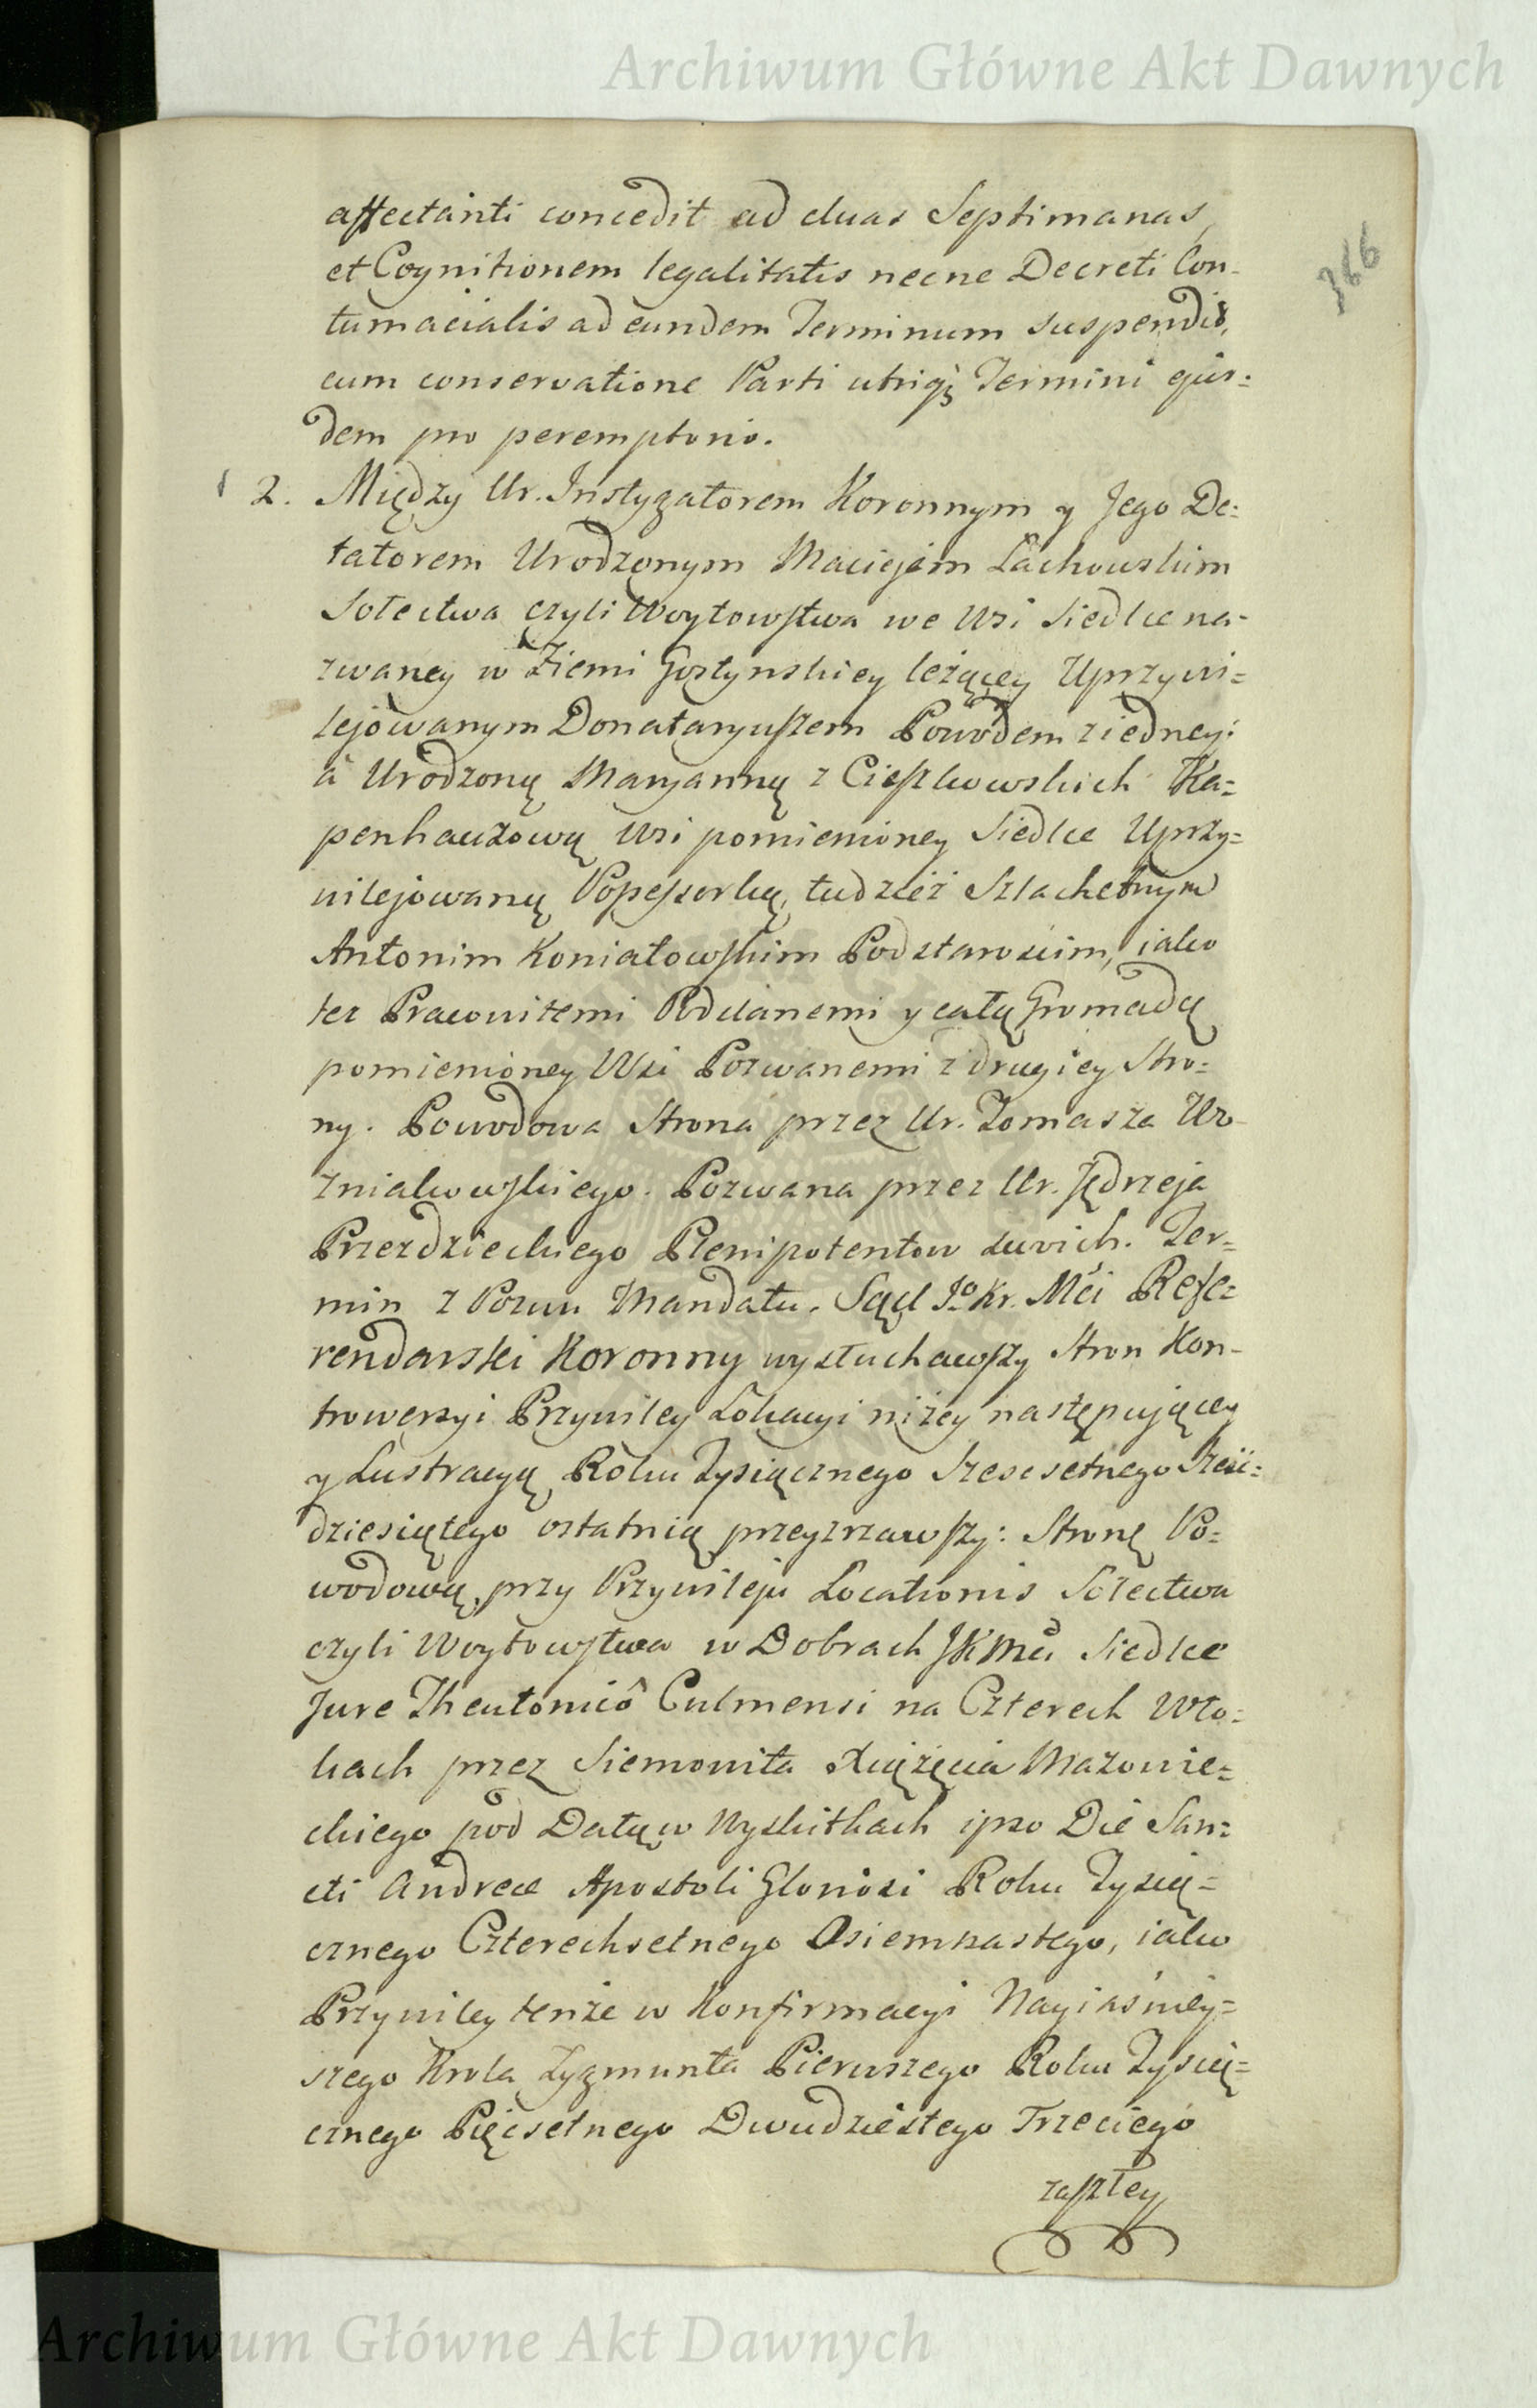 Archiwum Główne Akt Dawnych
366
affectanti concedit ad duas Septimanas,
et Cognitionem legalitatis necne Decreti Con-
tumacialis ad eundem Terminum suspendit,
cum conservatione Parti utriq; Termini ejus=
dem pro peremptorio.
2. Między Ur. Instygatorem Koronnym y Jego De=
latorem Urodzonym Maciejem Lachowskim
Sołectwa czyli Woytowstwa we Wsi Siedlce na-
zwaney w Ziemi Gostynskiey leżącey Uprzywi=
lejowanym Donataryuszem Powodem z iedney:
a Urodzoną Maryanną z Cieszkowskich Ka=
penhauzową Wsi pomienioney Siedlce Uprzy=
wilejowaną Possessorką, tudzież Szlachetnym
Antonim Koniatowskim Podstaroscim, iako
tez Pracowitemi Poddanemi y całą Gromadą
pomienioney Wsi Pozwanemi z drugiey Stro=
ny. Powodowa Strona przez Ur. Tomasza Wo-
zniakowskiego. Pozwana przez Ur. Jędrzeja
Przezdzieckiego Plenipotentow swoich. Ter=
min z Pozwu Mandatu. Sąd Jo Kr. Mci Refe=
rendarski Koronny wysłuchawszy Stron Kon-
trowersyi Przywiley Lokacyi niżey następującey
y Lustracyą Roku Tysiącznego Szescsetnego Szesc=
dziesiątego ostatnią przeyzrzawszy: Stronę Po=
wodową przy Przywileju Locationis Sołectwa
czyli Woytowstwa w Dobrach JKMci Siedlce
Jure Theutonicô Culmensi na Czterech Wło=
kach przez Siemowita Xiążęcia Mazowie=
ckiego pod Datą w Wyskitkach ipso Die San=
cti Andreae Apostoli Gloriosi Roku Tysią=
cznego Czterechsetnego Osiemnastego, iako
Przywiley tenże w Konfirmacyi Nayiaśniey=
szego Krola Zygmunta Pierwszego Roku Tysią=
cznego Pięcsetnego Dwudziestego Trzeciego
zaszłey
Archiwum Główne Akt Dawnych